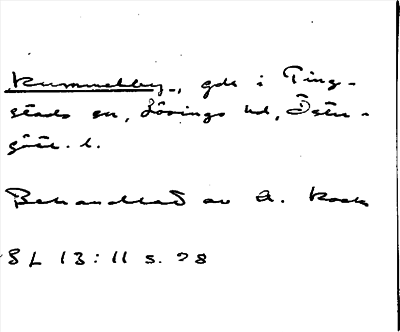 Kummelby, gde i Ting-
stads sn, Lösings hd, Öster-
götl. l.
Behandlad av A. Kock
SL 13:11 s. 28